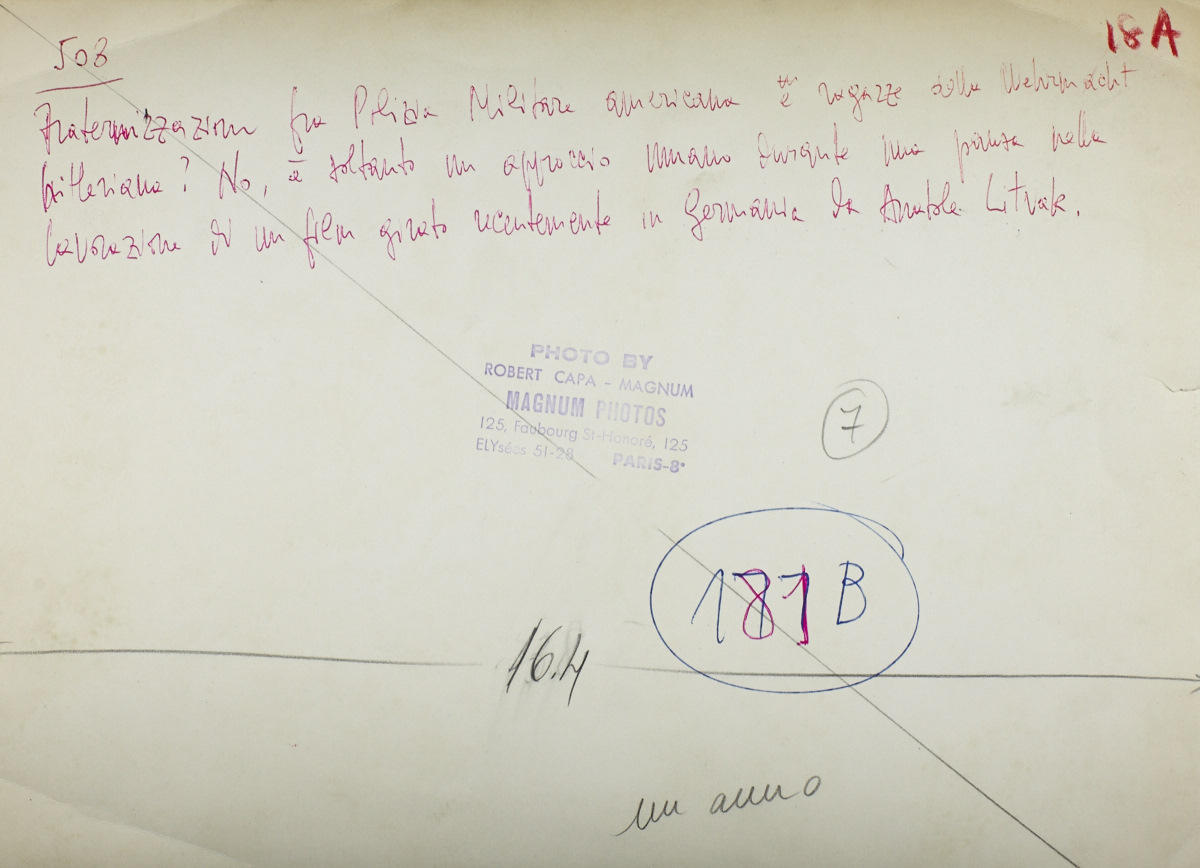 503
18A
Fraternizzazione fra Polizia Militare americana e ragazze della Wehrmacht
hitleriana? No, è soltanto un approccio umano durante una pausa nella
lavorazione di un film girato recentemente in Germania da Anatole Litvak.
PHOTO BY
ROBERT CAPA - MAGNUM
MAGNUM PHOTOS
125, Faubourg St-Honoré, 125
ELYsées 51-28 PARIS-8e
7
181 B
16.4
un anno